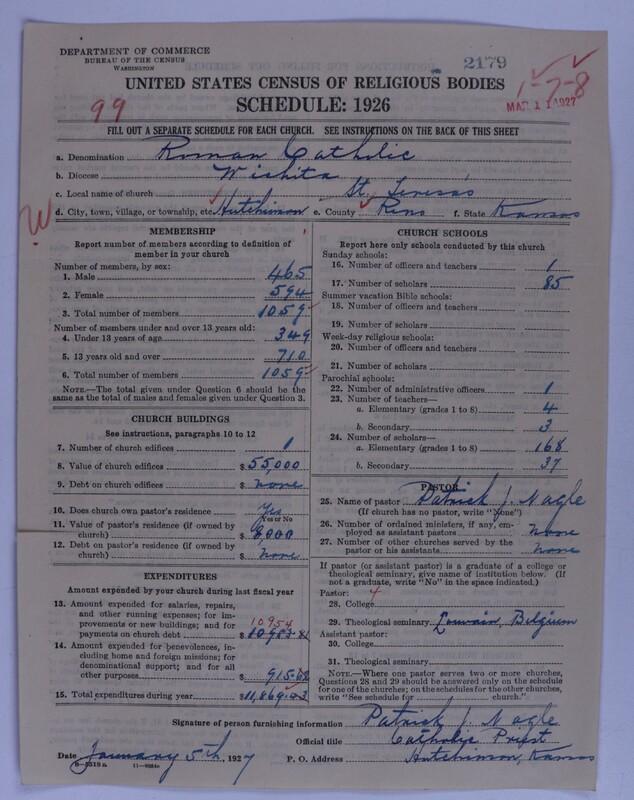 DEPARTMENT OF COMMERCE
BUREAU OF THE CENSUS
WASHINGTON
2179
UNITED STATES CENSUS OF RELIGIOUS BODIES
1-7-8
99
SCHEDULE: 1926
MAR 11 1927
FILL OUT A SEPARATE SCHEDULE FOR EACH CHURCH. SEE INSTRUCTIONS ON THE BACK OF THIS SHEET
a. Denomination Roman Catholic
b. Diocese Wichita
c. Local name of church St. Teresa's
d. City, town, village, or township, etc. Hutchinson e. County Reno f. State Kansas
W
MEMBERSHIP
Report number of members according to definition of
member in your church
Number of members, by sex:
1. Male 465
2. Female 594
3. Total number of members 1059
Number of members under and over 13 years old:
4. Under 13 years of age 349
5. 13 years old and over 710
6. Total number of members 1059
NOTE.—The total given under Question 6 should be the
same as the total of males and females given under Question 3.
CHURCH BUILDINGS
See instructions, paragraphs 10 to 12
7. Number of church edifices 1
8. Value of church edifices $55,000
9. Debt on church edifices $ none
10. Does church own pastor's residence Yes
Yes or No
11. Value of pastor's residence (if owned by
church) $ 8,000
12. Debt on pastor's residence (if owned by
church) $ none
EXPENDITURES
Amount expended by your church during last fiscal year
13. Amount expended for salaries, repairs,
and other running expenses; for im-
provements or new buildings; and for 10954
payments on church debt $
14. Amount expended for benevolences, in-
cluding home and foreign missions; for
denominational support; and for all
other purposes $ 915.
15. Total expenditures during year $11,869.
CHURCH SCHOOLS
Report here only schools conducted by this church
Sunday schools:
16. Number of officers and teachers 1
17. Number of scholars 85
Summer vacation Bible schools:
18. Number of officers and teachers
19. Number of scholars
Week-day religious schools:
20. Number of officers and teachers
21. Number of scholars
Parochial schools:
22. Number of administrative officers 1
23. Number of teachers—
a. Elementary (grades 1 to 8) 4
b. Secondary 3
24. Number of scholars—
a. Elementary (grades 1 to 8) 168
b. Secondary 37
PASTOR
25. Name of pastor Patrick J. Nagle
(If church has no pastor, write "None")
26. Number of ordained ministers, if any, em-
ployed as assistant pastors none
27. Number of other churches served by the
pastor or his assistants none
If pastor (or assistant pastor) is a graduate of a college or
theological seminary, give name of institution below. (If
not a graduate, write "No" in the space indicated.)
Pastor: 4
28. College
29. Theological seminary Louvain, Belgium
Assistant pastor:
30. College
31. Theological seminary
NOTE.—Where one pastor serves two or more churches,
Questions 28 and 29 should be answered only on the schedule
for one of the churches; on the schedules for the other churches,
write "See schedule for church."
Signature of person furnishing information Patrick J. Nagle
Official title Catholic Priest
Date January 5th, 1927 P. O. Address Hutchinson, Kansas